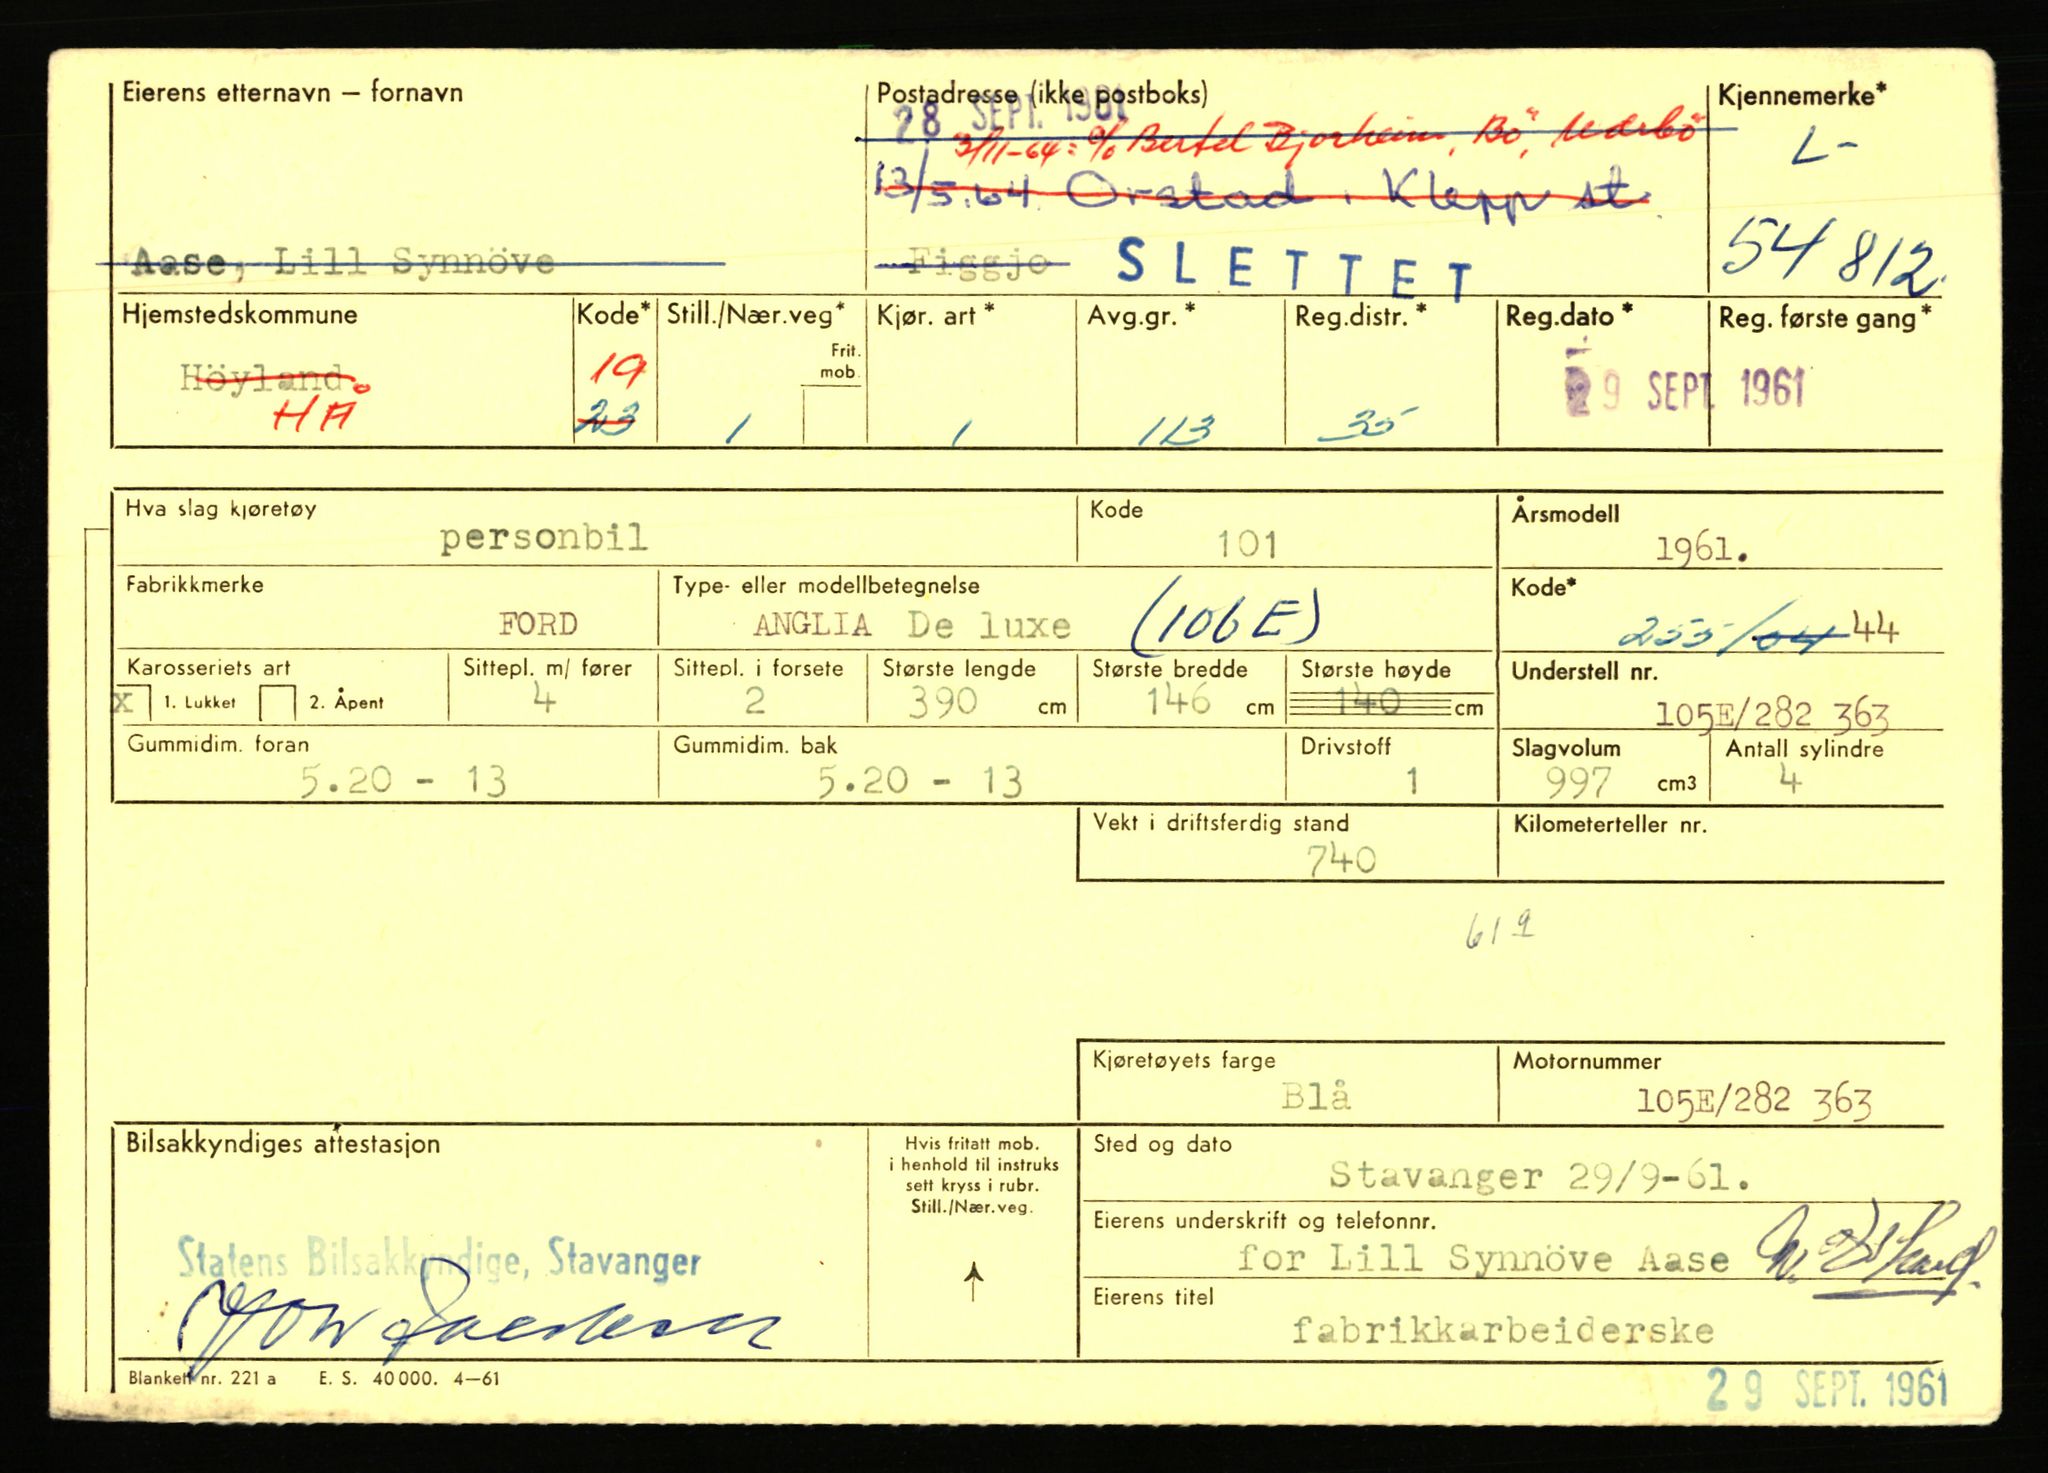 Eierens etternavn — fornavn
Postadresse (ikke postboks)
Kjennemerke*
28 SEPT. 1961
3/11-64: c/o Bertel Bjorheim, Bö, Nærbö
L-
13/5.64 Orstad, Klepp st.
Aase, Lill Synnöve
Figgjo
SLETTET
54 812.
Hjemstedskommune
Kode*
Still./Nær.veg*
Kjør. art*
Avg.gr.*
Reg.distr.*
Reg.dato*
Reg. første gang*
Frit. mob.
Höyland
19
29 SEPT. 1961
HÅ
23
1
1
113
35
Hva slag kjøretøy
Kode
Årsmodell
personbil
101
1961.
Fabrikkmerke
Type- eller modellbetegnelse
Kode*
FORD
ANGLIA De luxe (106E)
255/04 44
Karosseriets art
Sittepl. m/ fører
Sittepl. i forsete
Største lengde
Største bredde
Største høyde
Understell nr.
x 1. Lukket 2. Åpent
4
2
390 cm
146 cm
140 cm
105E/282 363
Gummidim. foran
Gummidim. bak
Drivstoff
Slagvolum
Antall sylindre
5.20 - 13
5.20 - 13
1
997 cm3
4
Vekt i driftsferdig stand
Kilometerteller nr.
740
619
Kjøretøyets farge
Motornummer
Blå
105E/282 363
Bilsakkyndiges attestasjon
Hvis fritatt mob.
i henhold til instruks
sett kryss i rubr.
Still./Nær.veg.
Sted og dato
Stavanger 29/9-61.
Eierens underskrift og telefonnr.
Statens Bilsakkyndige, Stavanger
for Lill Synnöve Aase
Eierens titel
fabrikkarbeiderske
Blankett nr. 221 a E. S. 40 000. 4—61
29 SEPT. 1961